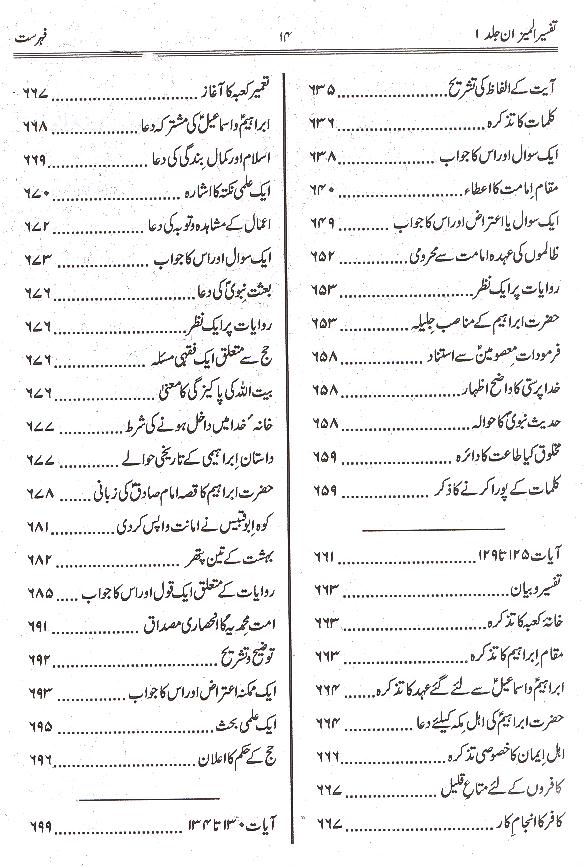 تفسیر المیزان جلد ۱
۱۴
فہرست
آیت کے الفاظ کی تشریح ۶۳۵
کلمات کا تذکرہ ۶۳۶
ایک سوال اور اس کا جواب ۶۳۸
مقام امامت کا اعطاء ۶۴۰
ایک سوال یا اعتراض اور اس کا جواب ۶۴۹
ظالموں کی عہدہ امامت سے محرومی ۶۵۲
روایات پر ایک نظر ۶۵۳
حضرت ابراہیمؑ کے مناصب جلیلہ ۶۵۳
فرمودات معصومینؑ سے استناد ۶۵۸
خدا پرستی کا واضح اظہار ۶۵۸
حدیث نبویؐ کا حوالہ ۶۵۸
مخلوق کیا طاعت کا دائرہ ۶۵۹
کلمات کے پورا کرنے کا ذکر ۶۵۹
آیات ۱۲۵ تا ۱۲۹ ۶۶۱
تفسیر و بیان ۶۶۳
خانۂ کعبہ کا تذکرہ ۶۶۳
مقام ابراہیمؑ کا تذکرہ ۶۶۳
ابراہیمؑ و اسماعیلؑ سے لئے گئے عہد کا تذکرہ ۶۶۴
حضرت ابراہیمؑ کی اہل مکہ کیلئے دعا ۶۶۴
اہل ایمان کا خصوصی تذکرہ ۶۶۶
کافروں کے لئے متاع قلیل ۶۶۷
کافر کا انجام کار ۶۶۷
تعمیر کعبہ کا آغاز ۶۶۷
ابراہیمؑ و اسماعیلؑ کی مشترکہ دعا ۶۶۸
اسلام اور کمال بندگی کی دعا ۶۶۹
ایک علمی نکتہ کا اشارہ ۶۷۰
اعمال کے مشاہدہ و توبہ کی دعا ۶۷۲
ایک سوال اور اس کا جواب ۶۷۳
بعثت نبویؐ کی دعا ۶۷۶
روایات پر ایک نظر ۶۷۶
حج سے متعلق ایک فقہی مسئلہ ۶۷۶
بیت اللہ کی پاکیزگی کا معنیٰ ۶۷۶
خانۂ خدا میں داخل ہونے کی شرط ۶۷۷
داستان ابراہیمی کے تاریخی حوالے ۶۷۷
حضرت ابراہیمؑ کا قصہ امام صادقؑ کی زبانی ۶۷۸
کوہ ابو قبیس نے امانت واپس کر دی ۶۸۱
بہشت کے تین پتھر ۶۸۲
روایات کے متعلق ایک قول اور اس کا جواب ۶۸۵
امت محمدیہؐ کا انحصاری مصداق ۶۹۱
توضیح و تشریح ۶۹۲
ایک ممکنہ اعتراض اور اس کا جواب ۶۹۳
ایک علمی بحث ۶۹۵
حج کے حکم کا اعلان ۶۹۶
آیات ۱۳۰ تا ۱۳۴ ۶۹۹